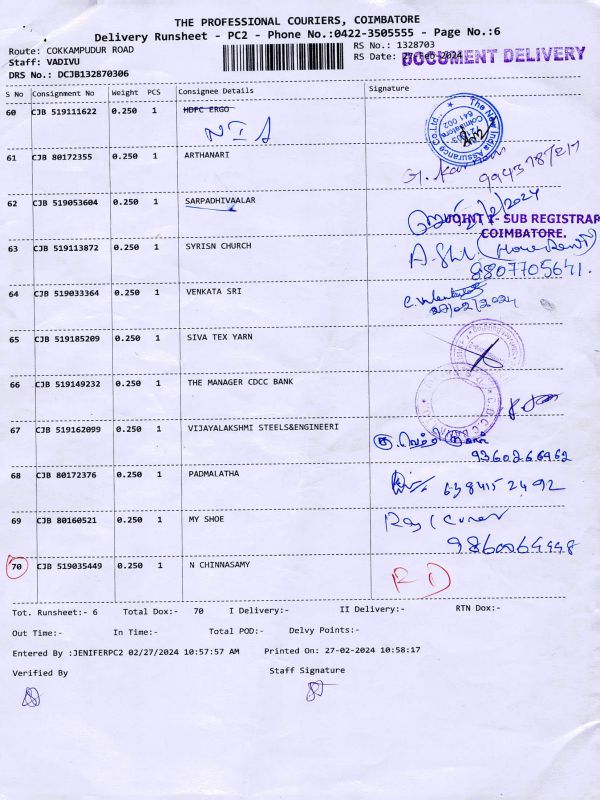 THE PROFESSIONAL COURIERS, COIMBATORE
Delivery Runsheet - PC2 - Phone No.:0422-3505555 - Page No.:6
Route: COKKAMPUDUR ROAD
RS No.: 1328703
Staff: VADIVU
RS Date: 27-Feb-2024
DOCUMENT DELIVERY
DRS No.: DCJB132870306
S No Consignment No Weight PCS Consignee Details Signature
60 CJB 519111622 0.250 1 HDFC ERGO
NIA
The New India Assurance Co. Ltd.
Coimbatore
641 002
61 CJB 80172355 0.250 1 ARTHANARI
62 CJB 519053604 0.250 1 SARPADHIVAALAR
JOINT I- SUB REGISTRAR
COIMBATORE.
63 CJB 519113872 0.250 1 SYRISN CHURCH
8807705641.
64 CJB 519033364 0.250 1 VENKATA SRI
27/02/2024
65 CJB 519185209 0.250 1 SIVA TEX YARN
66 CJB 519149232 0.250 1 THE MANAGER CDCC BANK
67 CJB 519162099 0.250 1 VIJAYALAKSHMI STEELS&ENGINEERI
9360266962
68 CJB 80172376 0.250 1 PADMALATHA
6384152492
69 CJB 80160521 0.250 1 MY SHOE
70 CJB 519035449 0.250 1 N CHINNASAMY
Tot. Runsheet:- 6 Total Dox:- 70 I Delivery:- II Delivery:- RTN Dox:-
Out Time:- In Time:- Total POD:- Delvy Points:-
Entered By :JENIFERPC2 02/27/2024 10:57:57 AM Printed On: 27-02-2024 10:58:17
Verified By Staff Signature